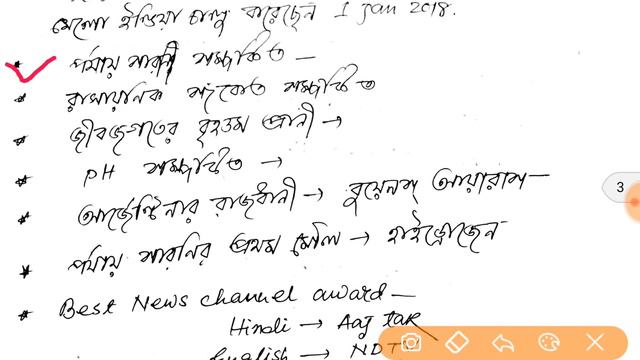 খেলো ইন্ডিয়া চালু করেছেন 1 Jan 2018.
* পর্যায় সারণী সম্পর্কিত —
* রাসায়নিক সংকেত সম্পর্কিত
* জীবজগতের বৃহত্তম প্রানী →
* pH সম্পর্কিত →
* আর্জেন্টিনার রাজধানী → বুয়েনস্ আয়ারস —
* পর্যায় সারনির প্রথম মৌল → হাইড্রোজেন
* Best News channel award —
Hindi → Aaj tak
English → NDT
3